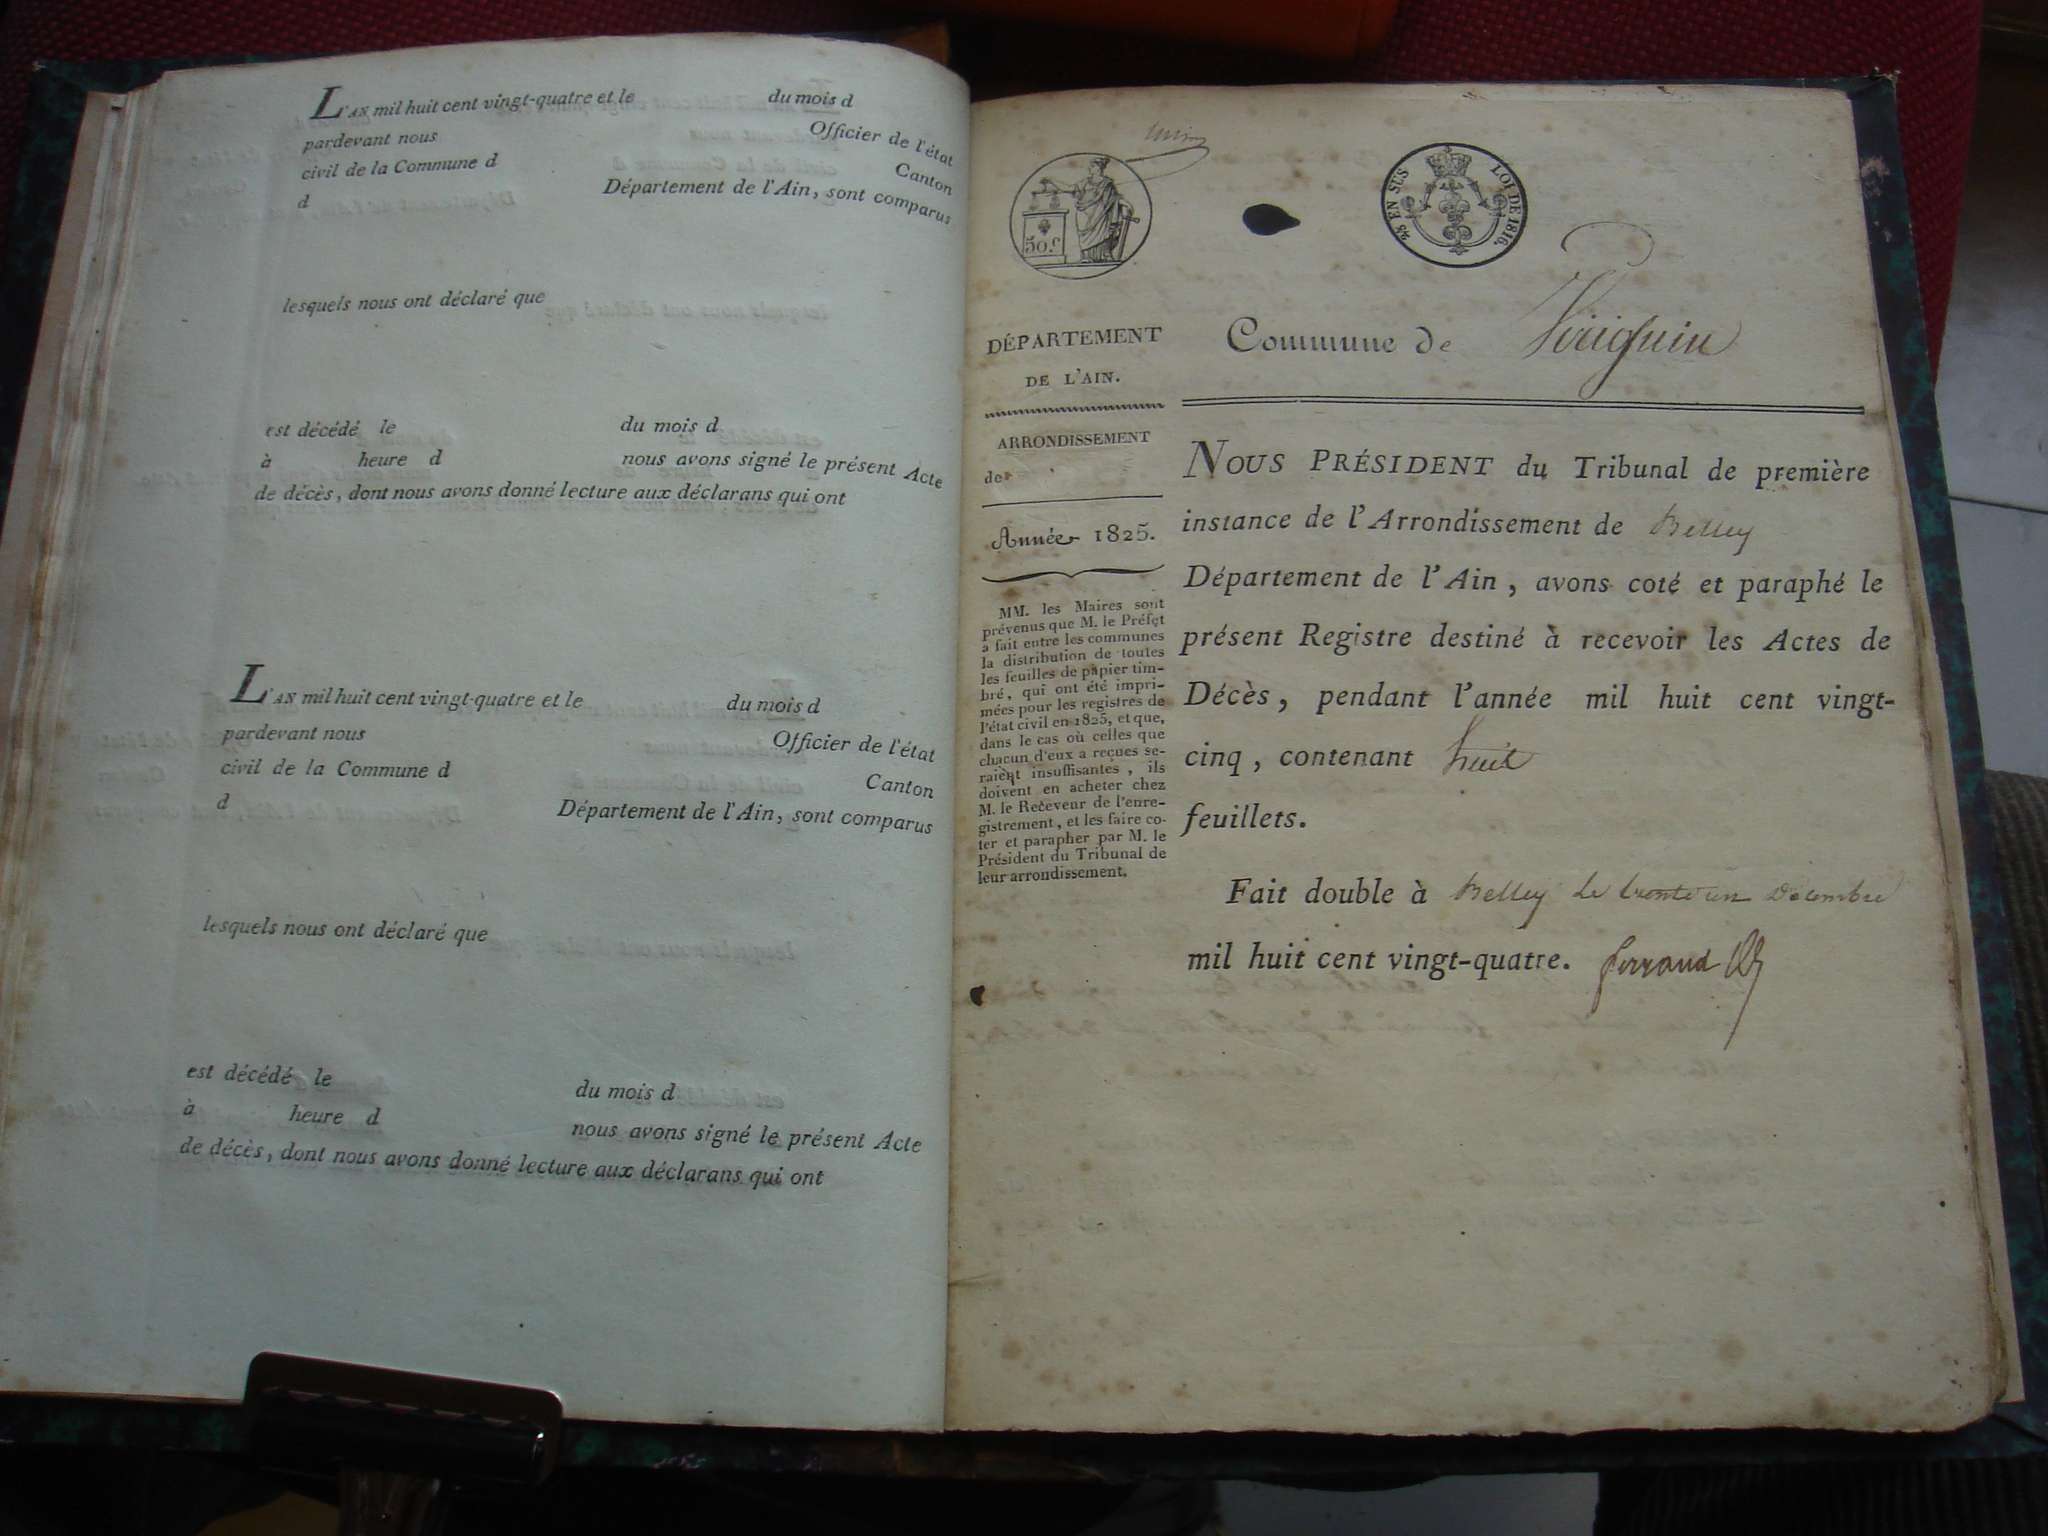 L'AN mil huit cent vingt-quatre et le du mois d
pardevant nous Officier de l'état
civil de la Commune d Canton
d Département de l'Ain, sont comparus
lesquels nous ont déclaré que
est décédé le du mois d
à heure d nous avons signé le présent Acte
de décès, dont nous avons donné lecture aux déclarans qui ont
L'AN mil huit cent vingt-quatre et le du mois d
pardevant nous Officier de l'état
civil de la Commune d Canton
d Département de l'Ain, sont comparus
lesquels nous ont déclaré que
est décédé le du mois d
à heure d nous avons signé le présent Acte
de décès, dont nous avons donné lecture aux déclarans qui ont
50.c
EN SUS LOI DE 1816.
DÉPARTEMENT
DE L'AIN.
ARRONDISSEMENT
de
Année 1825.
MM. les Maires sont
prévenus que M. le Préfet
a fait entre les communes
la distribution de toutes
les feuilles de papier tim-
bré, qui ont été impri-
mées pour les registres de
l'état civil en 1825, et que,
dans le cas où celles que
chacun d'eux a reçues se-
raient insuffisantes, ils
doivent en acheter chez
M. le Receveur de l'enre-
gistrement, et les faire co-
ter et parapher par M. le
Président du Tribunal de
leur arrondissement.
Commune de Virignin
NOUS PRÉSIDENT du Tribunal de première
instance de l'Arrondissement de Belley
Département de l'Ain, avons coté et paraphé le
présent Registre destiné à recevoir les Actes de
Décès, pendant l'année mil huit cent vingt-
cinq, contenant huit
feuillets.
Fait double à Belley le trente un Décembre
mil huit cent vingt-quatre. ferrand